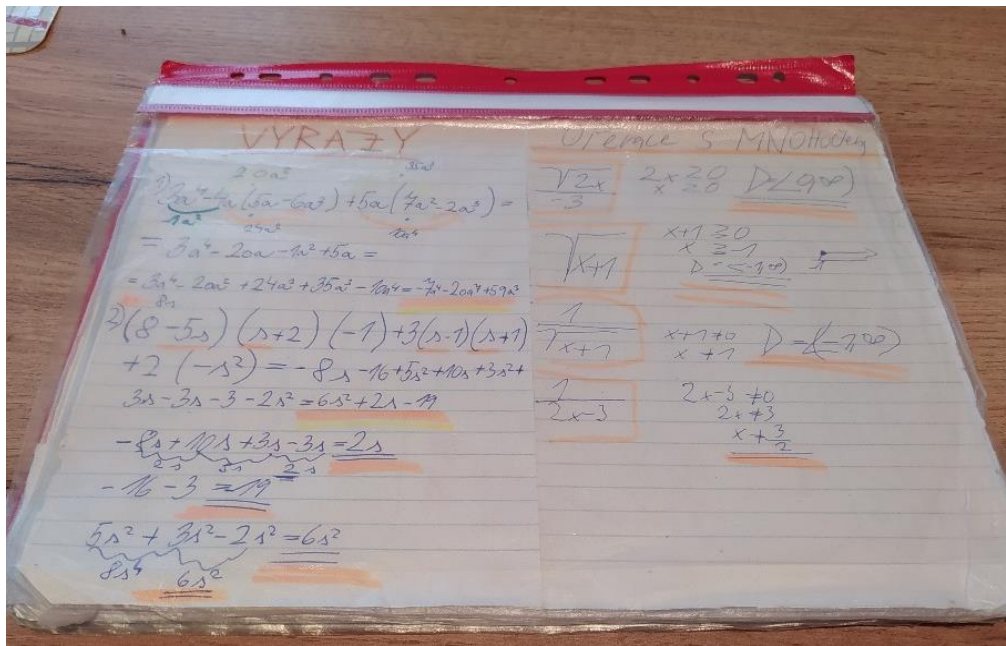 VÝRAZY
20a³ 35a³
1) 3a⁴-4a(5a-6a³)+5a(7a²-2a³)=
1a²
= 3a⁴-20a-1a²+5a=
= 3a⁴-20a²+24a³+35a³-10a⁴=-7a⁴-20a⁴+59a³
8s
2) (8-5s)(s+2)(-1)+3(s-1)(s+1)
+2(-s²)=-8s-16+5s²+10s+3s²+
3s-3s-3-2s²=6s²+2s-19
-8s+10s+3s-3s=2s
2s 3s 2s
-16-3=19
5s²+3s²-2s²=6s²
8s⁴ 6s²
Operace s MNOžinami
√2x / -3 2x≥0 D<0,∞)
x≥0
√x+1 x+1≥0
x≥-1
D=<-1,∞)
1 / √x+1 x+1≠0 D=(-1,∞)
x≠1
1 / 2x-3 2x-3≠0
2x≠3
x≠3/2